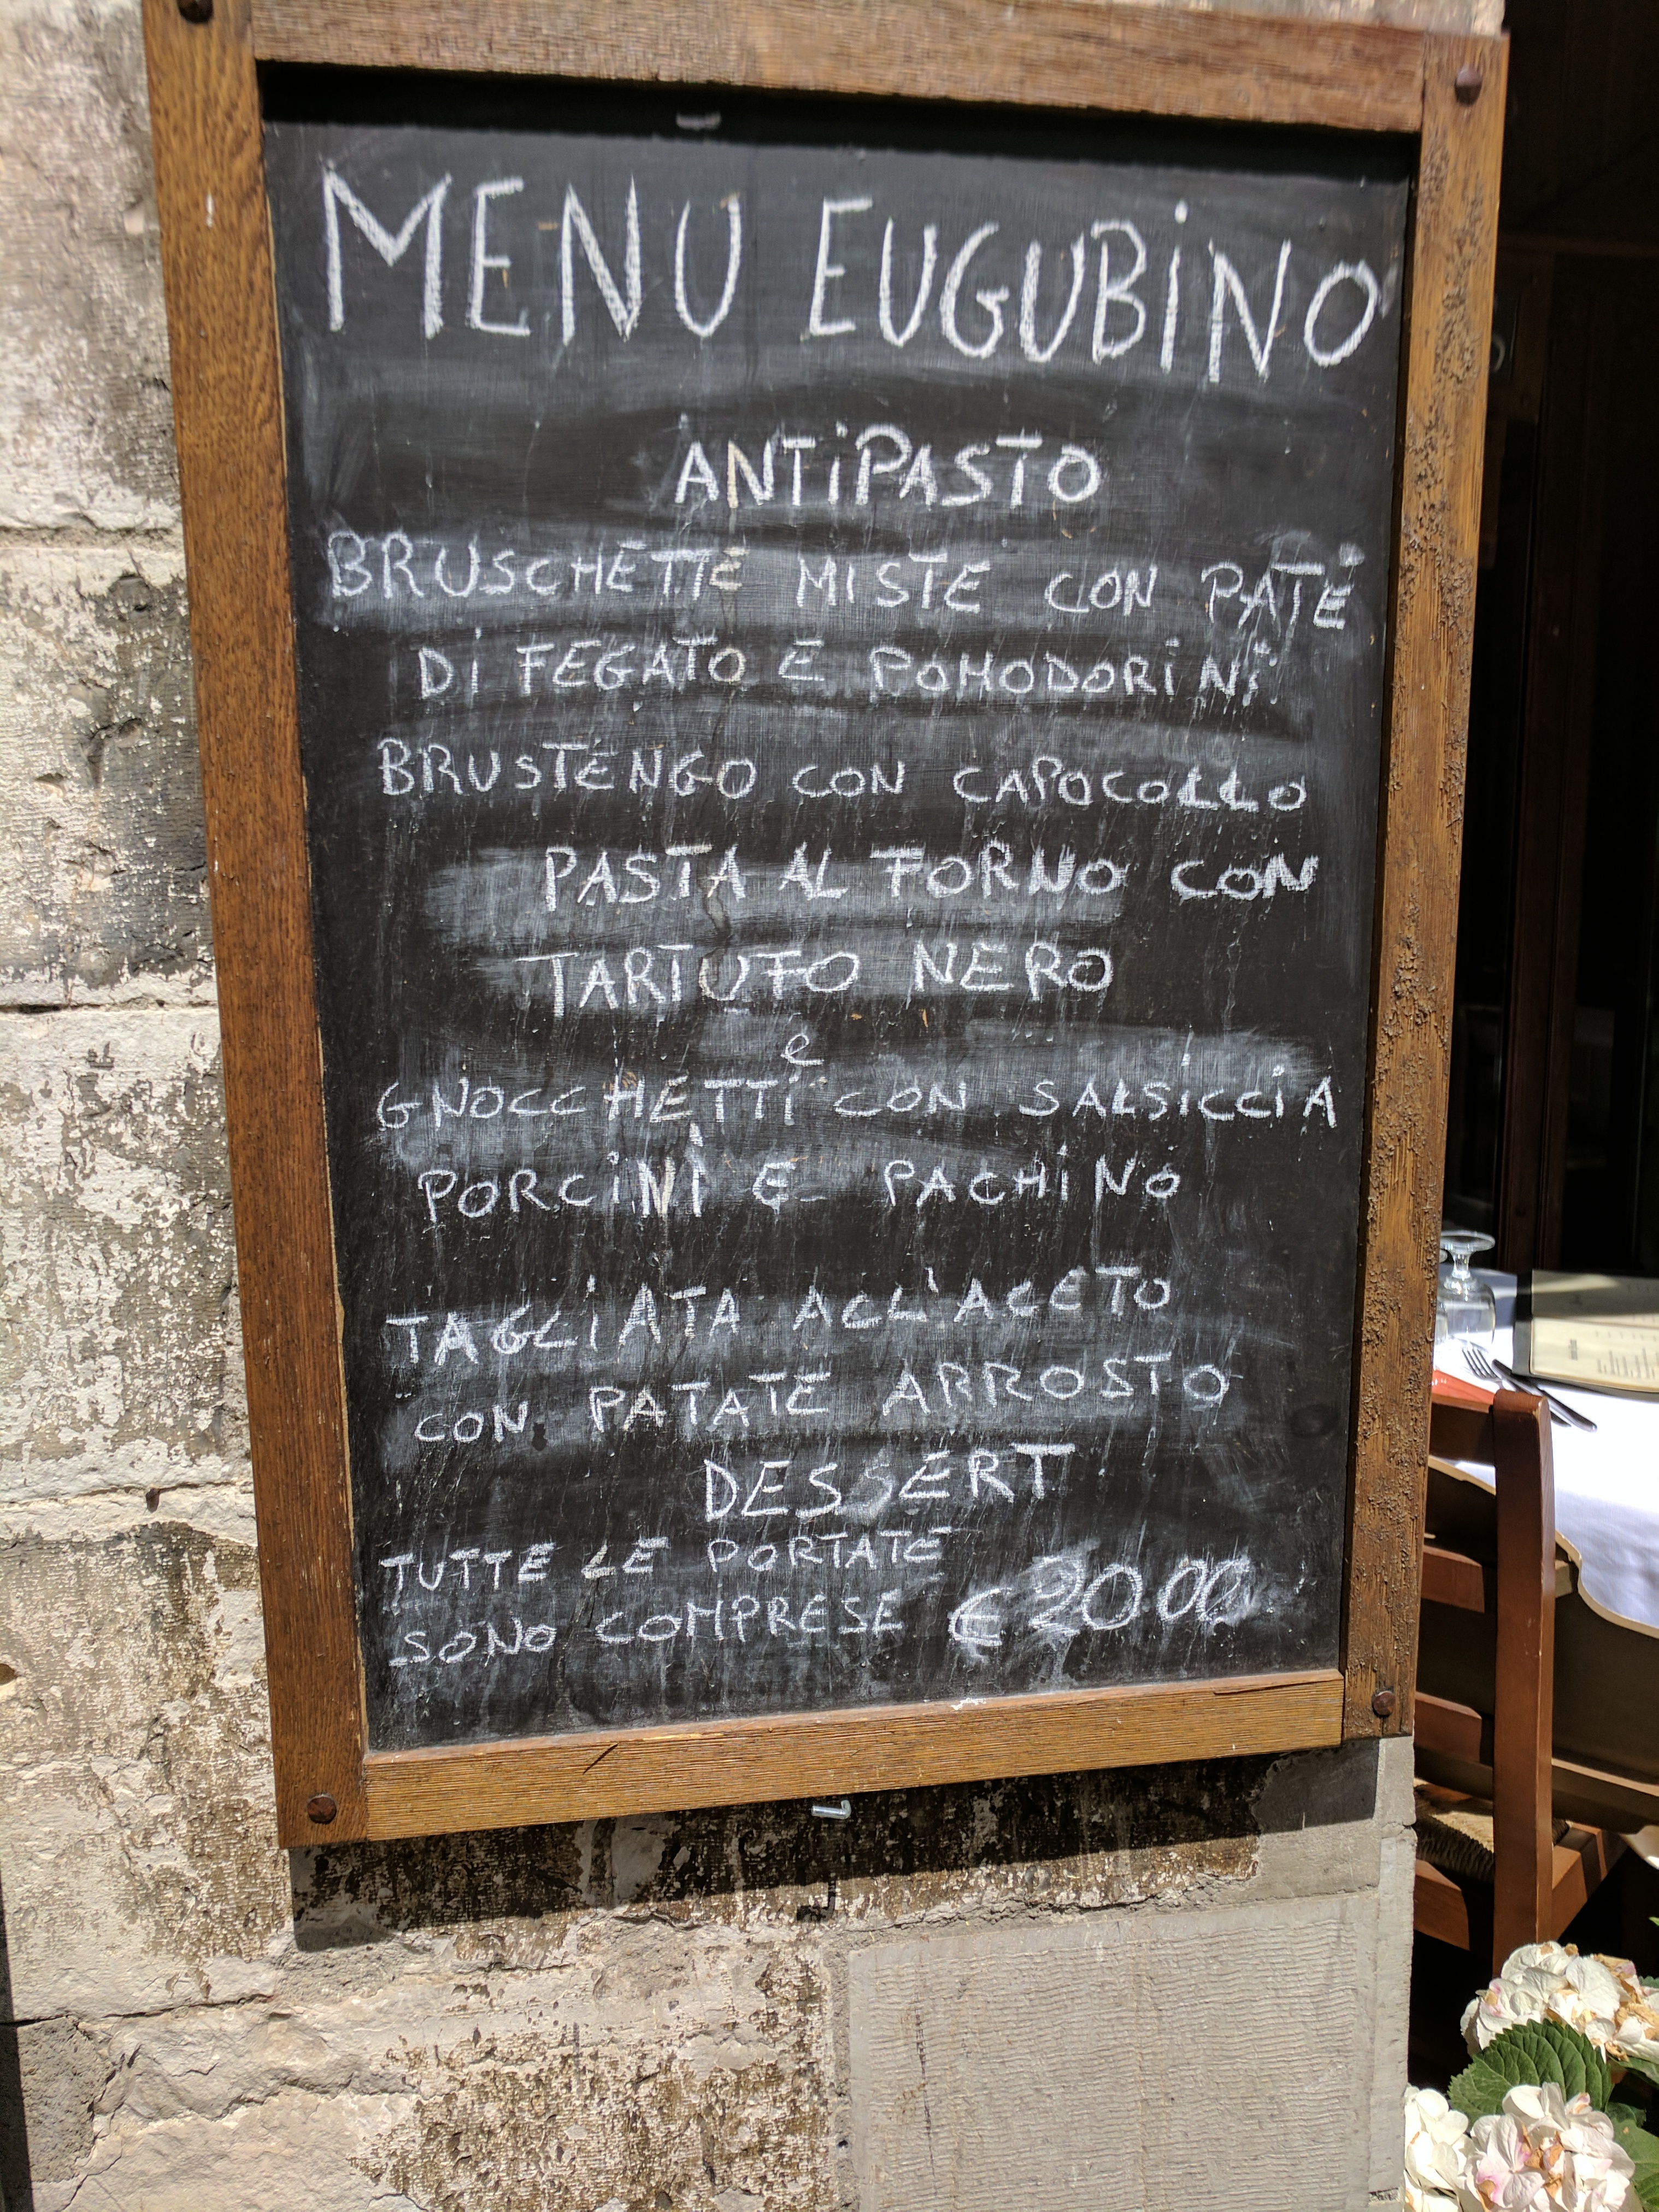 MENU EUGUBINO
ANTIPASTO
BRUSCHETTE MISTE CON PATÉ
DI FEGATO E POMODORINI
BRUSTENGO CON CAPOCOLLO
PASTA AL FORNO CON
TARTUFO NERO
e
GNOCCHETTI CON SALSICCIA
PORCINI E PACHINO
TAGLIATA ALL'ACETO
CON PATATE ARROSTO
DESSERT
TUTTE LE PORTATE
SONO COMPRESE € 20 00